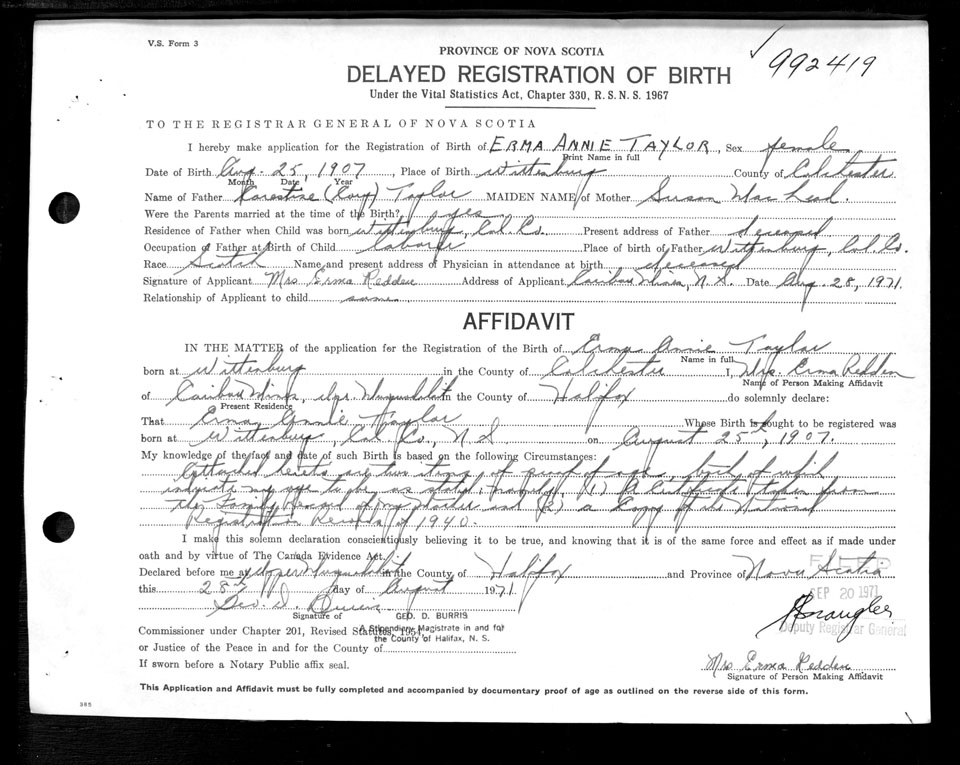 V.S. Form 3
992419
PROVINCE OF NOVA SCOTIA
DELAYED REGISTRATION OF BIRTH
Under the Vital Statistics Act, Chapter 330, R.S.N.S. 1967
TO THE REGISTRAR GENERAL OF NOVA SCOTIA
I hereby make application for the Registration of Birth of ERMA ANNIE TAYLOR, Sex female
Print Name in full
Date of Birth Aug. 25, 1907 Place of Birth Wittenburg County of Colchester
Month Date Year
Name of Father (Roy) Taylor MAIDEN NAME of Mother Susan Mac Leod.
Were the Parents married at the time of the Birth? yes
Residence of Father when Child was born Wittenburg, Col. Co. Present address of Father deceased
Occupation of Father at Birth of Child laborer Place of birth of Father Wittenburg, Col. Co.
Race Scotch Name and present address of Physician in attendance at birth deceased
Signature of Applicant Mrs Erma Redden Address of Applicant Caribou Mines, N.S. Date Aug. 28, 1971.
Relationship of Applicant to child same
AFFIDAVIT
IN THE MATTER of the application for the Registration of the Birth of Erma Annie Taylor
Name in full
born at Wittenburg in the County of Colchester I, Mrs. Erma Redden
Name of Person Making Affidavit
of Caribou Mines, Upr. Musquodoboit in the County of Halifax do solemnly declare:
Present Residence
That Erma Annie Taylor Whose Birth is sought to be registered was
born at Wittenburg, Col. Co., N.S on August 25th, 1907.
My knowledge of the fact and date of such Birth is based on the following Circumstances:
Attached hereto are two items of proof of age, both of which
indicate my age to be as stated, namely, (1) A Certificate taken from
the Family Record of my mother and (2) a Copy of the National
Registration Records of 1940.
I make this solemn declaration conscientiously believing it to be true, and knowing that it is of the same force and effect as if made under
oath and by virtue of The Canada Evidence Act.
Declared before me at Upper Musquodoboit in the County of Halifax and Province of Nova Scotia
this 28th day of August 1971
FILED
SEP 20 1971
Geo. D. Burris
Signature of GEO. D. BURRIS
Deputy Registrar General
Commissioner under Chapter 201, Revised Statutes, 1954,
A Stipendiary Magistrate in and for
the County of Halifax, N. S.
or Justice of the Peace in and for the County of
If sworn before a Notary Public affix seal.
Mrs Erma Redden
Signature of Person Making Affidavit
This Application and Affidavit must be fully completed and accompanied by documentary proof of age as outlined on the reverse side of this form.